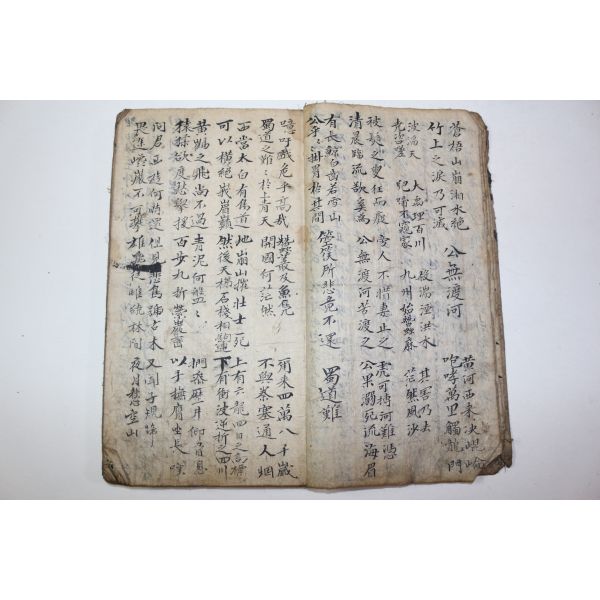 蒼梧山崩湘水絶
竹上之淚乃可滅
公無渡河
黃河西來決崑崙
咆哮萬里觸龍門
波滔天
堯咨嗟
大禹理百川
兒啼不窺家
殺湍湮洪水
九州始蠶麻
其害乃去
茫然風沙
被髮之叟狂而癡
清晨臨流欲奚爲
旁人不惜妻止之
公無渡河苦渡之
虎可搏河難憑
公果溺死流海眉
有長鯨白齒若雪山
公乎〻掛罥於其間
箜篌所悲竟不還
蜀道難
噫吁戲危乎高哉
蜀道之難〻於青天
蠶叢及魚鳧
開國何茫然
爾來四萬八千歲
不與秦塞通人烟
西當太白有鳥道
可以橫絶峨眉巓
地崩山摧壯士死
然後天梯石棧相鉤連
上有六龍回日之高標
下有衝波逆折之回川
黃鶴之飛尚不過
猿猱欲度愁攀援
青泥何盤〻
百步九折縈巖巒
捫參歷井仰脅息
以手撫膺坐長嘆
問君西遊何時還
畏途巉巖不可攀
但見悲鳥號古木
雄飛從雌繞林間
又聞子規啼
夜月愁空山